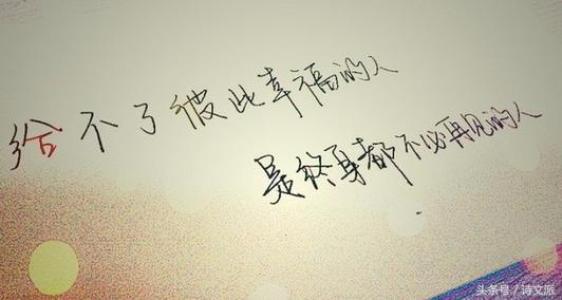 给不了彼此幸福的人
是终身都不必再见的人
头条号/诗文旅